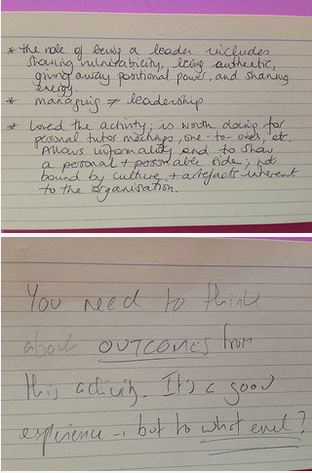 * the role of being a leader includes
sharing vulnerability, being authentic,
giving away positional power, and sharing
energy.
* managing ≠ leadership
* Loved the activity; is worth doing for
personal tutor meetings, one-to-ones, etc.
Allows informality and to show
a personal + personable side; not
bound by culture + artefacts inherent
to the organisation.
You need to think
about OUTCOMES from
this activity. It's a good
experience -, but to what end?